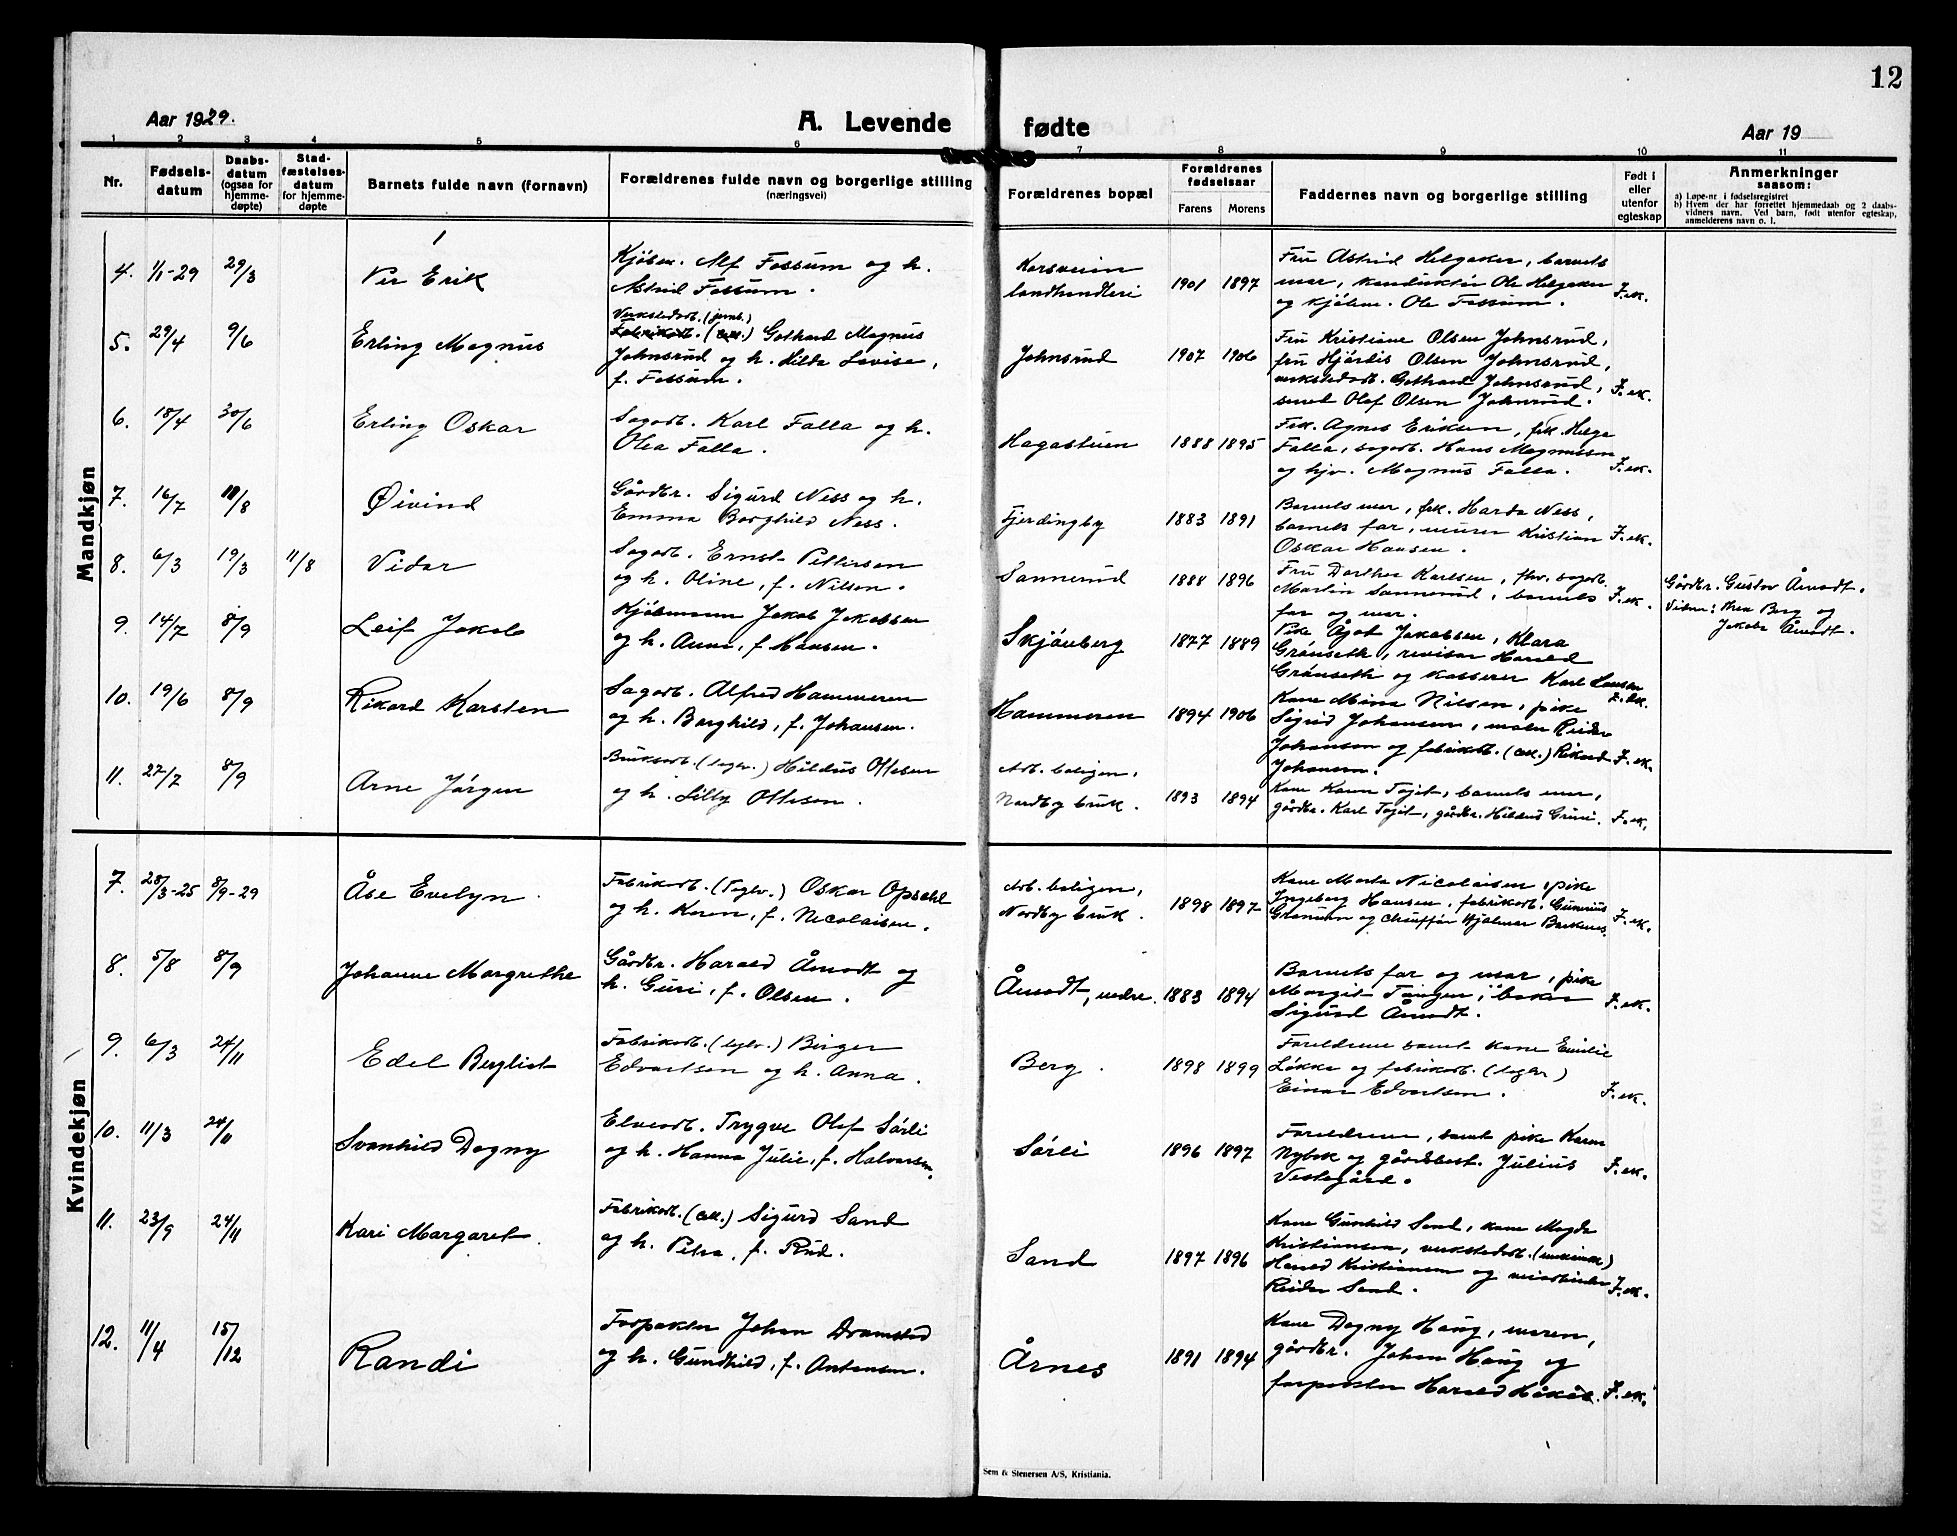 12
Aar 1929.
A. Levende
fødte
Aar 19
1 2 3 4 5 6 7 8 9 10 11
Nr.
Fødsels-
datum
Daabs-
datum
(ogsaa for
hjemme-
døpte)
Stad-
fæstelses-
datum
for hjemme-
døpte
Barnets fulde navn (fornavn)
Forældrenes fulde navn og borgerlige stilling
(næringsvei)
Forældrenes bopæl
Forældrenes
fødselsaar
Farens Morens
Faddernes navn og borgerlige stilling
Født i
eller
utenfor
egteskap
Anmerkninger
saasom:
a) Løpe-nr. i fødselsregistret
b) Hvem der har forrettet hjemmedaab og 2 daabs-
vidners navn. Ved barn, født utenfor egteskap,
anmelderens navn o. l.
Mandkjøn
4. 1/1-29 29/3
Per Erik
Kjøbm. Alf Fossum og h.
Astrid Fossum.
Korsveien
landhandleri
1901 1897
Fru Astrid Helgaker, barnets
mor, konduktør Ole Helgaker
og kjøbm. Ole Fossum.
F. ek.
5. 29/4 9/6
Erling Magnus
Verkstedarb. (jernb.)
Fabrikarb. (cell.) Gothard Magnus
Johnsrud og h. Hilda Lovise,
f. Fossum.
Johnsrud
1907 1906
Fru Kristiane Olsen Johnsrud,
fru Hjørdis Olsen Johnsrud,
verkstedarb. Gothard Johnsrud,
smed Olaf Olsen Johnsrud.
F. ek.
6. 18/4 30/6
Erling Oskar
Sagarb. Karl Falla og h.
Olea Falla.
Hagasteien
1888 1895
Frk. Agnes Eriksen, frk. Helga
Falla, sagarb. Hans Magnussen
og hjv. Magnus Falla.
F. ek.
7. 16/7 11/8
Øivind
Gårdbr. Sigurd Ness og h.
Emma Borghild Ness.
Fjerdingby
1883 1891
Barnets mor, frk. Harda Ness,
barnets far, murer Kristian
Oskar Hansen.
F. ek.
8. 6/3 19/3 11/8
Vidar
Sagarb. Ernst Pettersen
og h. Oline, f. Nilsen.
Sannerud
1888 1896
Fru Dorthea Karlsen, fhv. sagarb.
Martin Sannerud, barnets
far og mor.
F. ek.
Gårdbr. Gustav Åmodt.
Vidner: Thea Berg og
Jakobe Åmodt.
9. 14/7 8/9
Leif Jakob
Kjøbmann Jakob Jakobsen
og h. Anna, f. Hansen.
Skjønberg
1877 1889
Pike Ågot Jakobsen, Klara
Grønseth, revisor Harald
Grønseth og kasserer Karl Larsen
F. ek.
10. 19/6 8/9
Rikard Karsten
Sagarb. Alfred Hammeren
og h. Borghild, f. Johansen.
Hammeren
1894 1906
Kone Mina Nilsen, pike
Sigrid Johansen, maler Reidar
Johansen og fabrikarb. (cell.) Rikard
Johansen.
F. ek.
11. 27/7 8/9
Arne Jørgen
Bruksarb. (teglv.) Hildus Ottesen
og h. Lilly Ottesen.
Arb. boligen,
Nordby bruk.
1893 1894
Kone Karen Tøjet, barnets mor,
gårdbr. Karl Tøjet, gårdbr. Hildus Grini.
F. ek.
Kvindekjøn
7. 28/3-25 8/9-29
Åse Evelyn
Fabrikarb. (Teglv.) Oskar Opsahl
og h. Karen, f. Nicolaisen.
Arb. boligen,
Nordby bruk.
1898 1897
Kone Marta Nicolaisen, pike
Ingeborg Hansen, fabrikarb. Gunerius
Granum og chauffør Hjalmar Barkenes.
F. ek.
8. 5/8 8/9
Johanne Margrethe
Gårdbr. Harald Åmodt og
h. Guri, f. Olsen.
Åmodt, nedre.
1883 1894
Barnets far og mor, pike
Margit Tangen, baker
Sigurd Åmodt.
F. ek.
9. 6/3 24/11
Edel Bergliot
Fabrikarb. (teglv.) Birger
Edvartsen og h. Anna.
Berg.
1898 1899
Foreldrene samt kone Emilie
Løkka og fabrikarb. (teglv.)
Einar Edvartsen.
F. ek.
10. 11/3 24/11
Svanhild Dagny
Elvearb. Trygve Olaf Sørli
og h. Hanna Julie, f. Halvorsen.
Sørli
1896 1897
Foreldrene, samt pike Karen
Nybak og gårdsbest. Julius
Vestegård.
F. ek.
11. 23/9 24/11
Kari Margaret
Fabrikarb. (cell.) Sigurd Sand
og h. Petra, f. Rud.
Sand
1897 1896
Kone Gunhild Sand, kone Magda
Kristiansen, verkstedarb.
Harald Kristiansen og
Reidar Sand.
F. ek.
12. 11/4 15/12
Randi
Forpakter Johan Dramstad
og h. Gundhild, f. Antonsen.
Årnes
1891 1894
Kone Dagny Haug, moren,
gårdbr. Johan Haug og
forpakter Harald Håkås.
F. ek.
Sem & Stenersen A/S, Kristiania.